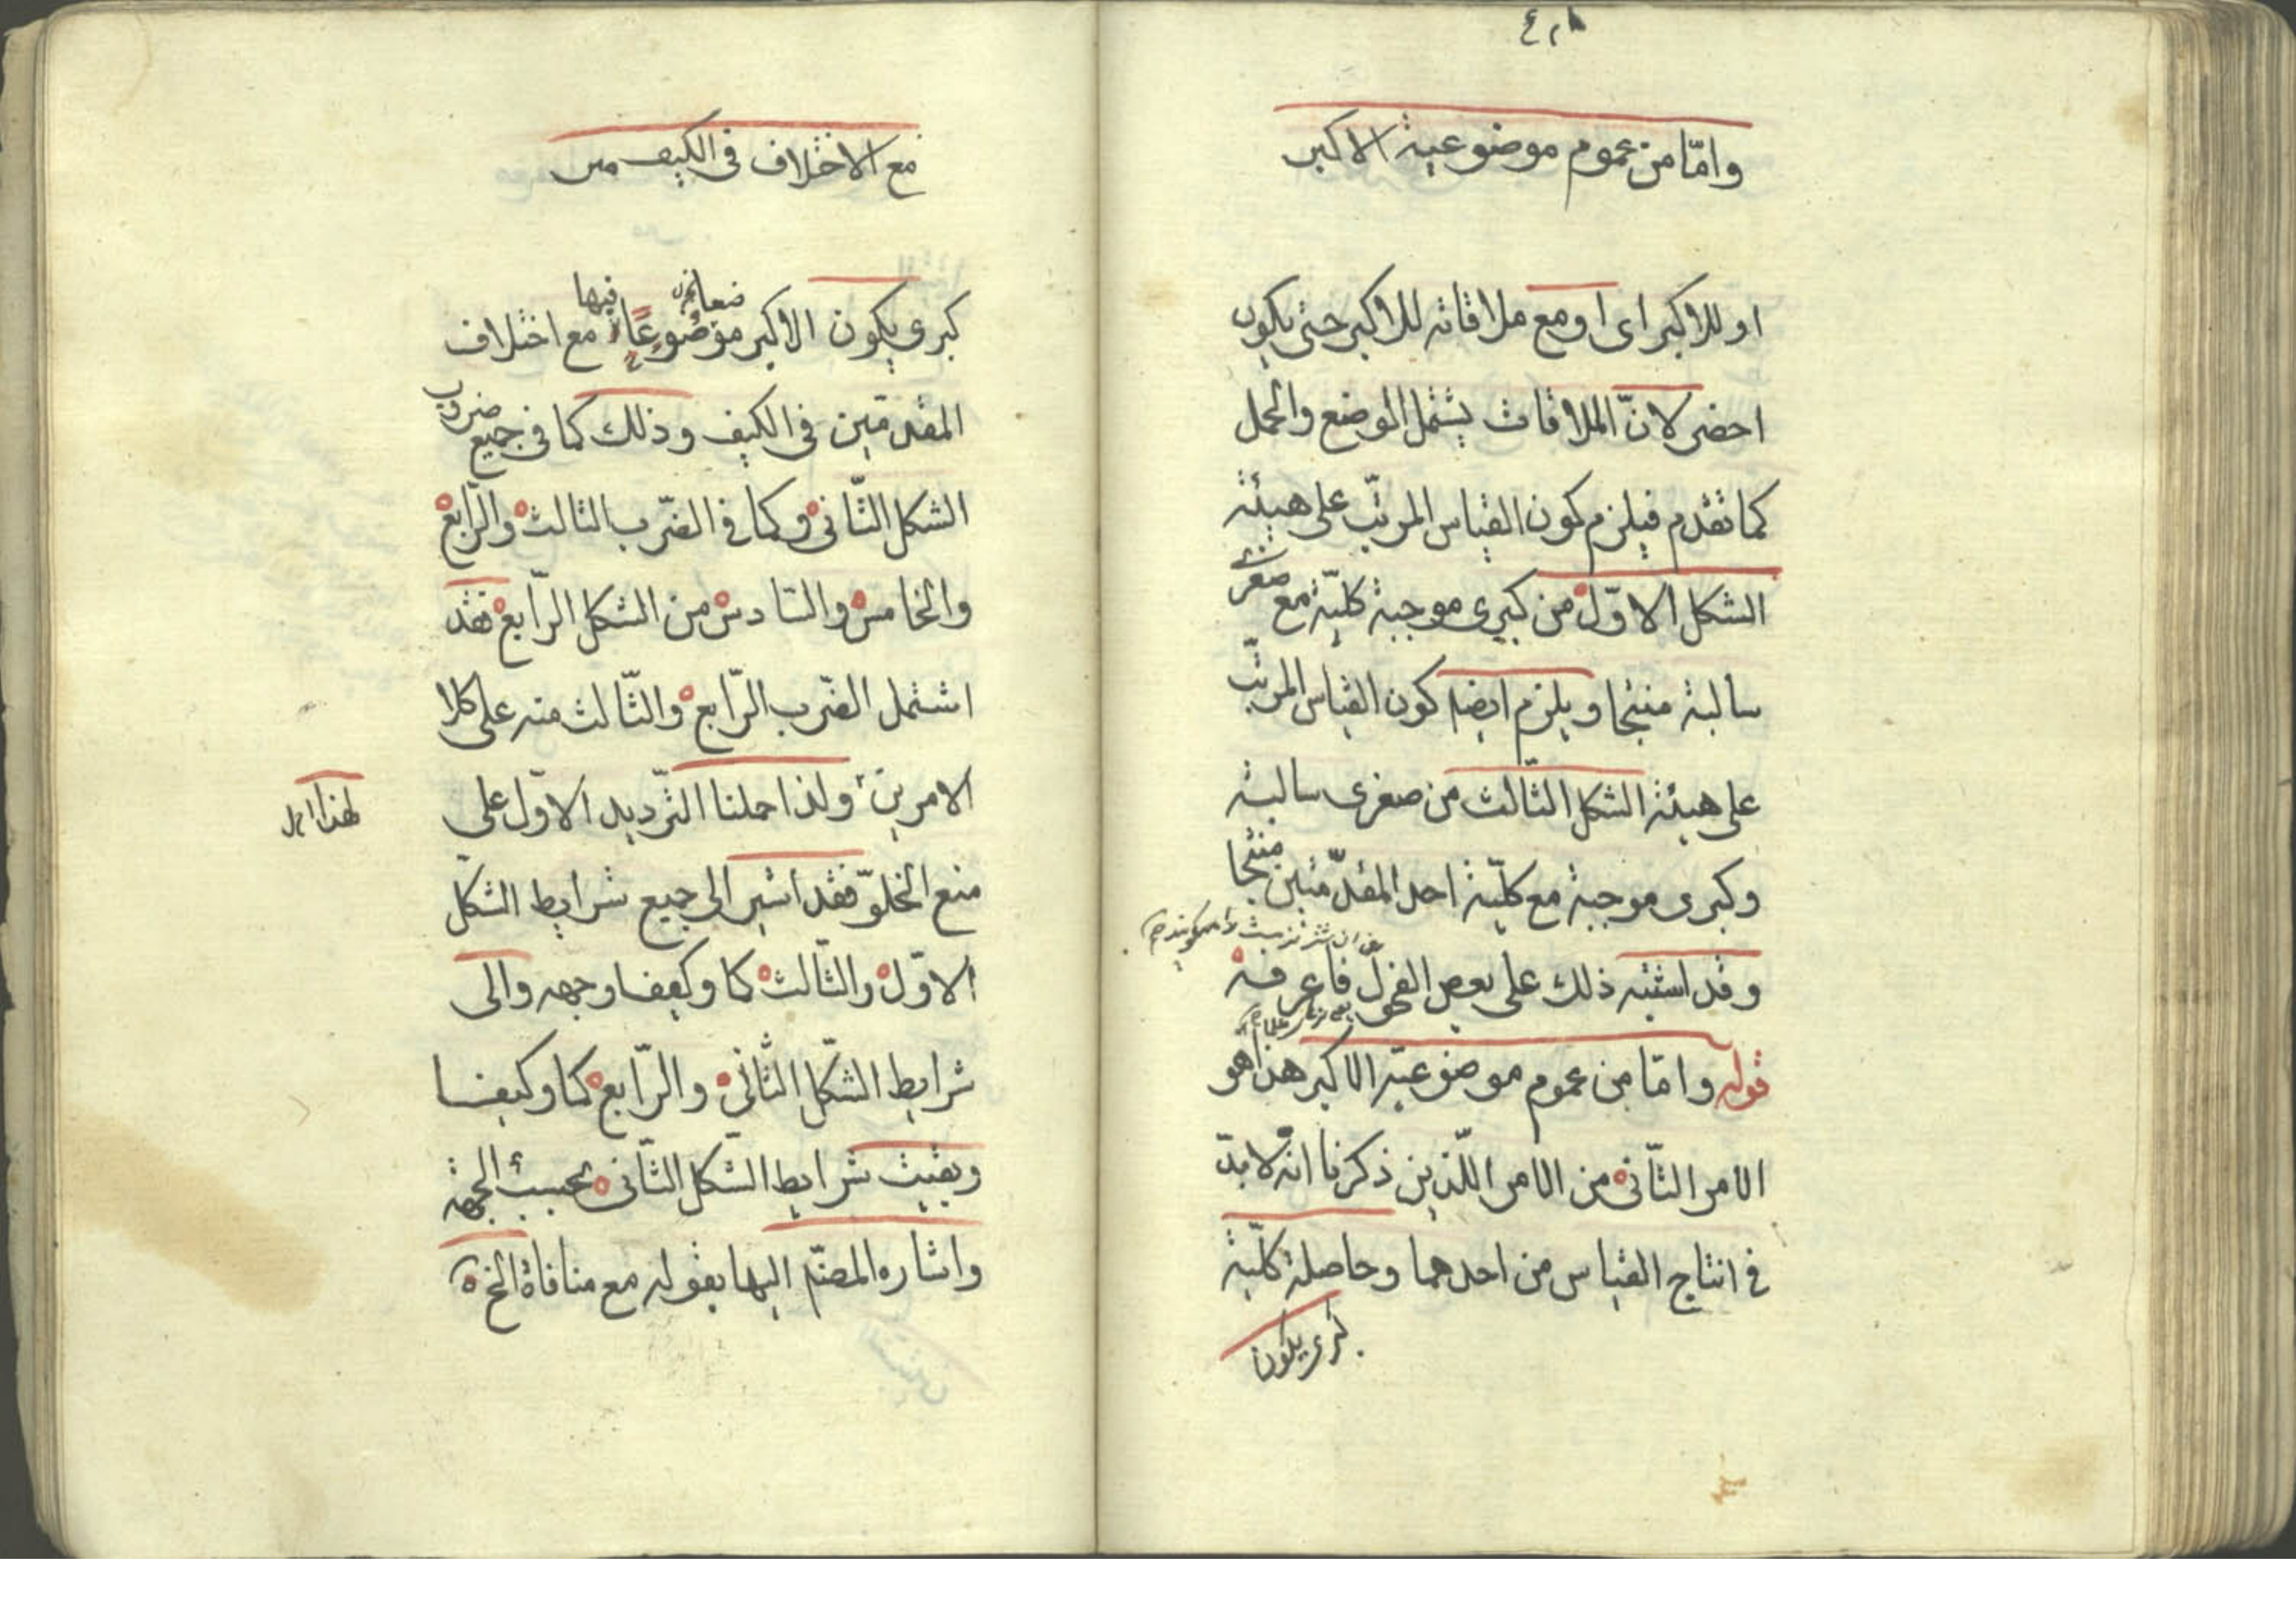 وامّا من عموم موضوعية الاكبر
او للاكبر اى او مع ملاقاته للاكبر حتى يكون
اخصر لانّ الملاقات يشتمل الوضع والحمل
كما تقدم فيلزم كون القياس المرتّب على هيئة
الشكل الاوّل من كبرى موجبة كلّية مع صغرى
سالبة منتجا ويلزم ايضا كون القياس المرتّب
على هيئة الشكل الثّالث من صغرى سالبة
وكبرى موجبة مع كلّية احد المقدّمتين منتجا
وقد اشتبه ذلك على بعض الفحول فاعرفه
قوله وامّا من عموم موضوعيّة الاكبر هذا هو
الامر الثّانى من الامر اللّذين ذكرنا انه لا بدّ
فى انتاج القياس من احدهما وحاصله كلّية
كبرى يكون
مع الاختلاف فى الكيف
كبرى يكون الاكبر موضوعًا فيها مع اختلاف
المقدمتين فى الكيف وذلك كما فى جميع ضروب
الشكل الثّانى وكما فى الضّرب الثالث والرّابع
والخامس والسّادس من الشكل الرّابع فقد
اشتمل الضّرب الرّابع والثّالث منه على كلا
الامرين ولذا حملنا التّرديد الاوّل على
لهذا
منع الخلوّ فقد اشير الى جميع شرايط الشّكل
الاوّل والثّالث كما وكيفا وجهه والى
شرايط الشّكل الثّانى والرّابع كما وكيفا
وبقيت شرايط الشّكل الثّانى بحسب الجهة
واشاره المصنّم اليها بقوله مع منافاة الخ